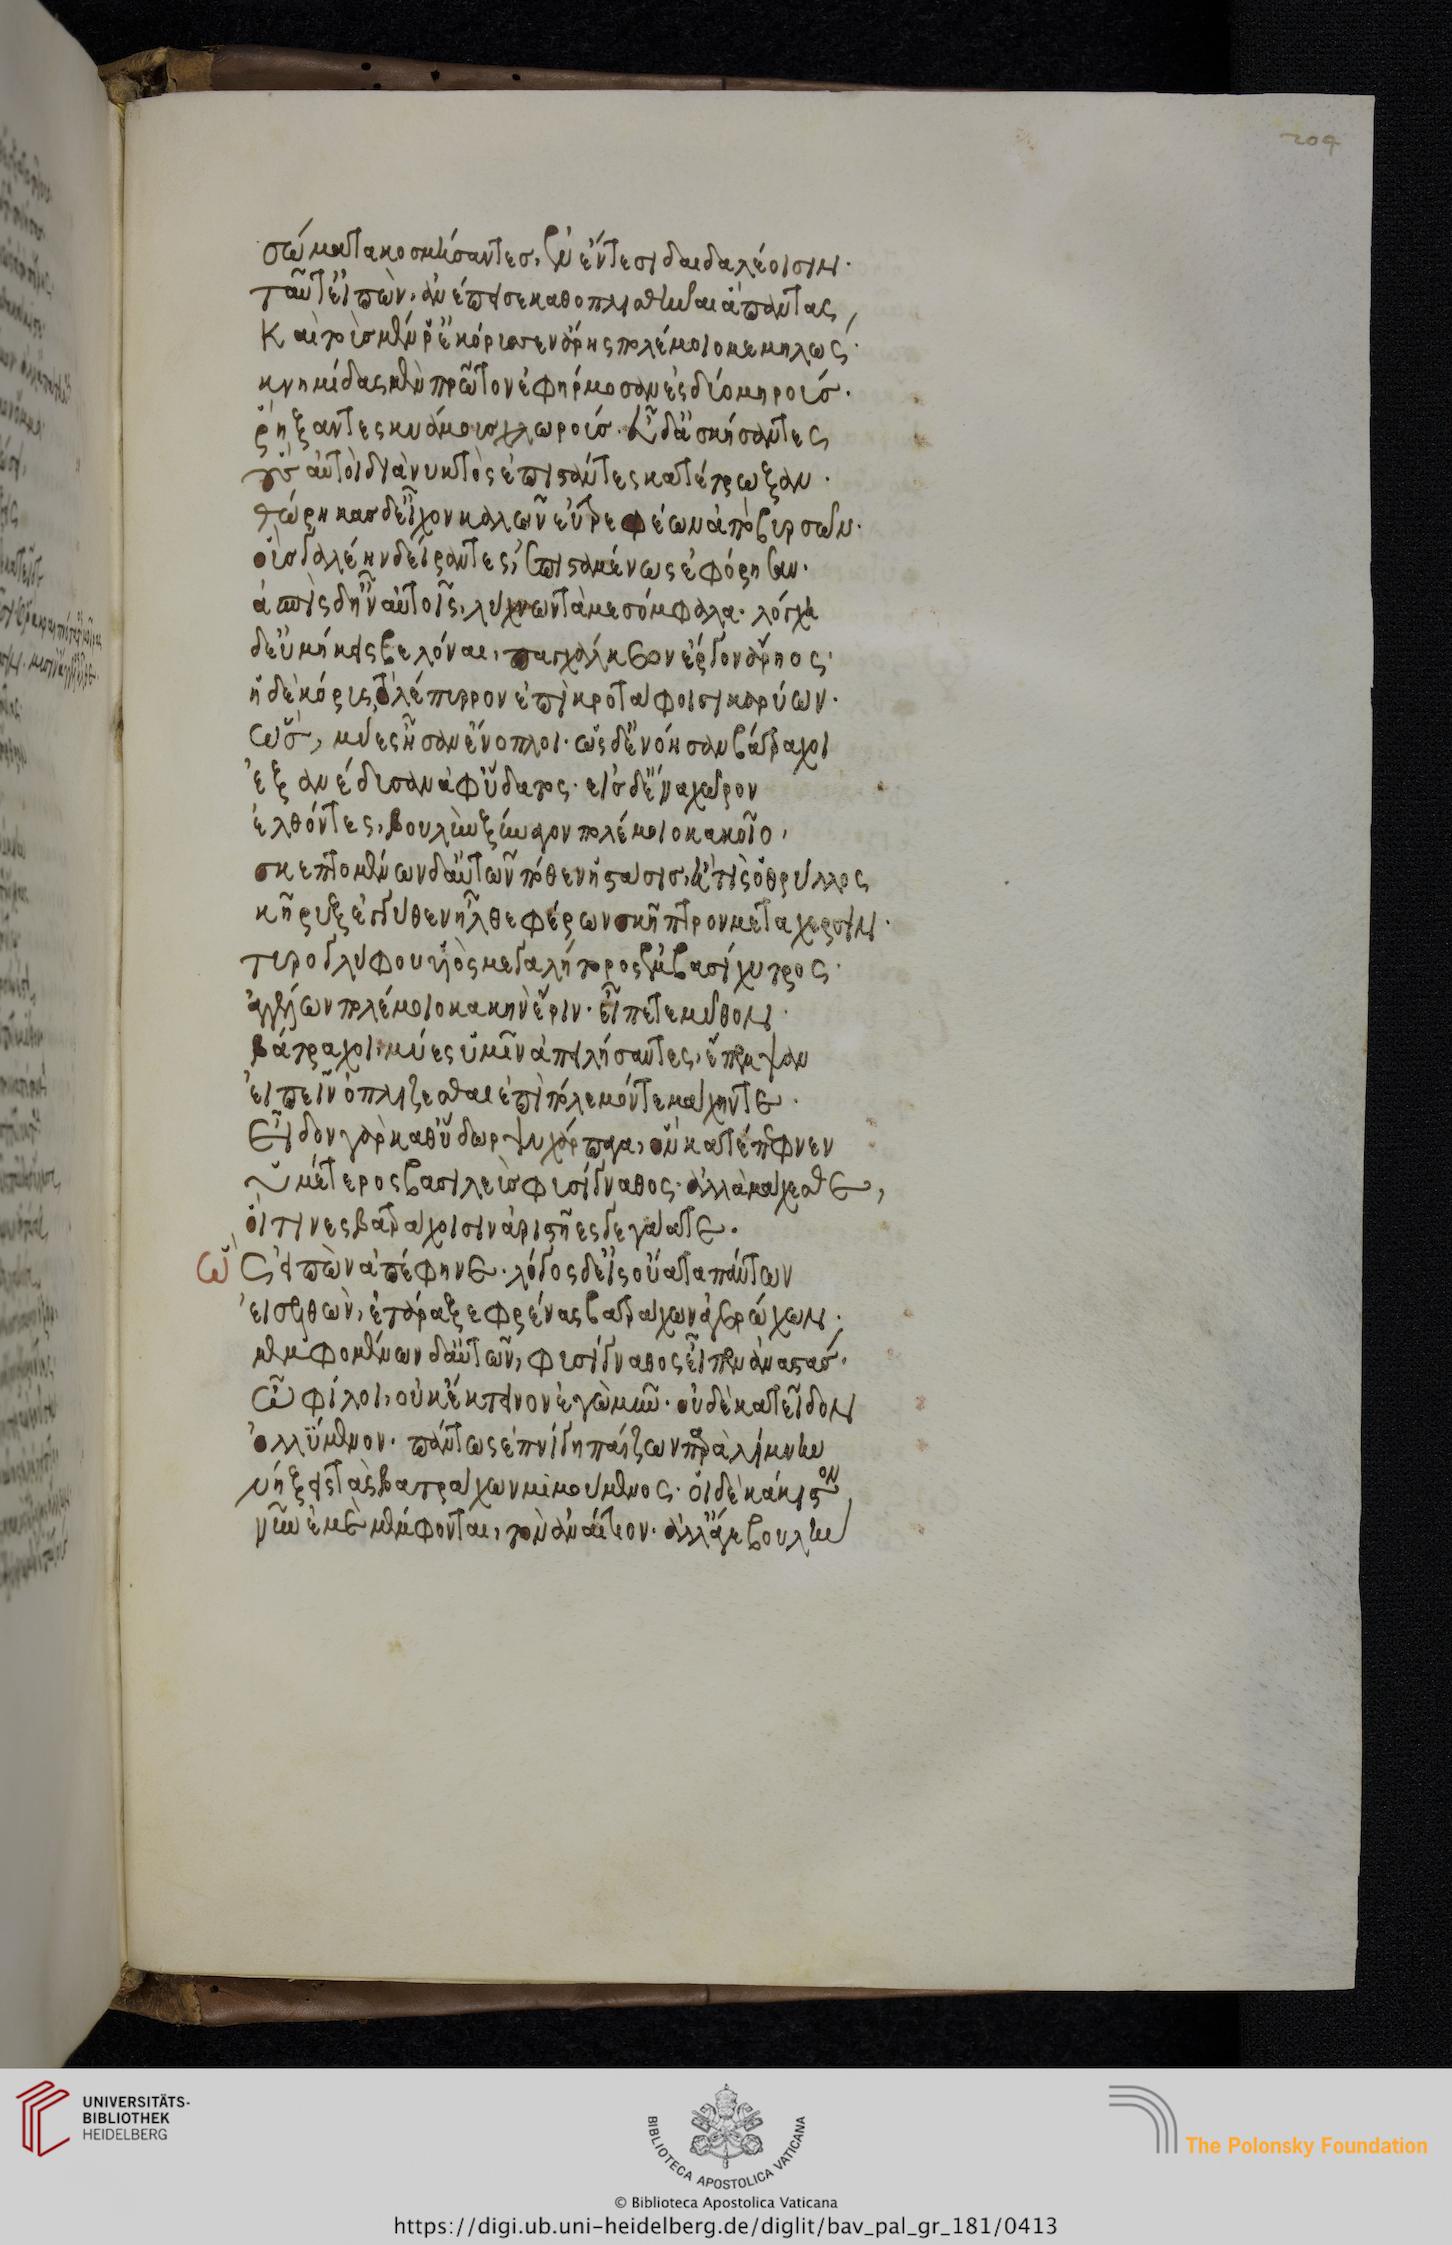 204
σώματα κοσμήσαντες, ἐν ἔντεσι δαιδαλέοισιν·
ταῦτ' εἰπὼν, ἀνέπεισε καθοπλισθῆναι ἅπαντας,
Καὶ τοὺς μέν ῥ' ἐκόρυσεν ἄρης πολέμοιο μεμηλώς·
κνημίδας μὲν πρῶτον ἐφήρμοσαν ἐς δύο μηρούς·
ῥήξαντες κυάμους χλωρούς· εὖ δ' ἀσκήσαντες
οὓς αὐτοὶ διὰ νυκτὸς ἐπιστάντες κατέτρωξαν·
θώρηκας δ' εἶχον καλῶν εὐτρεφέων ἀπὸ βυρσῶν·
οὓς γαλέην δείραντες, ἐπισταμένως ἐφόρησαν·
ἀσπὶς δ' ἦν αὐτοῖς, λύχνων τὰ μεσόμφαλα· λόγχη
δ' εὐμήκεις βελόναι, παγχάλκεον ἔργον ἄρηος·
ἡ δὲ κόρυς, τὸ λέπυρον ἐπὶ κροτάφοισι καρύων·
ὣς, μύες ἦσαν ἔνοπλοι· ὡς δ' ἐνόησαν βάτραχοι
ἐξανέδυσαν ἀφ' ὕδατος· εἰς δ' ἕνα χῶρον
ἐλθόντες, βουλὴν ξύναγον πολέμοιο κακοῖο,
σκεπτομένων δ' αὐτῶν πόθεν ἡ στάσις, ἢ τίς ὁ θρύλλος
κῆρυξ ἐγγύθεν ἦλθε φέρων σκῆπτρον μετὰ χερσίν·
τυρογλύφου υἱὸς μεγαλήτορος ἐμβασίχυτρος·
ἀγγέλων πολέμοιο κακὴν ἔριν· εἶπέ τε μῦθον·
βάτραχοι, μύες ὑμῖν ἀπειλήσαντες, ἔπεμψαν
εἰπεῖν ὁπλίζεσθαι ἐπὶ πόλεμόν τε μάχην τε·
εἶδον γὰρ καθ' ὕδωρ ψιχάρπαγα, ὃν κατέπεφνεν
ὑμέτερος βασιλεὺς φυσίγναθος· ἀλλὰ μάχεσθε,
οἵτινες βατράχοισιν ἀριστῆες γεγάατε.
ὣς εἰπὼν ἀπέφηνε· λόγος δ' εἰς οὔατα πάντων
εἰσελθὼν, ἐτάραξε φρένας βατράχων ἀγερώχων·
μεμφομένων δ' αὐτῶν, φυσίγναθος εἶπεν ἀναστάς·
ὦ φίλοι, οὐκ ἔκτεινον ἐγὼ μῦν· οὐδὲ κατεῖδον
ὀλλύμενον· πάντως ἐπνίγη παίζων παρὰ λίμνην
νήξεις τὰς βατράχων μιμούμενος· οἱ δὲ κάκιστον
νῦν ἐμὲ μέμφονται, τὸν ἀναίτιον· ἀλλ' ἄγε βουλὴν
UNIVERSITÄTS-
BIBLIOTHEK
HEIDELBERG
BIBLIOTECA APOSTOLICA VATICANA
The Polonsky Foundation
© Biblioteca Apostolica Vaticana
https://digi.ub.uni-heidelberg.de/diglit/bav_pal_gr_181/0413